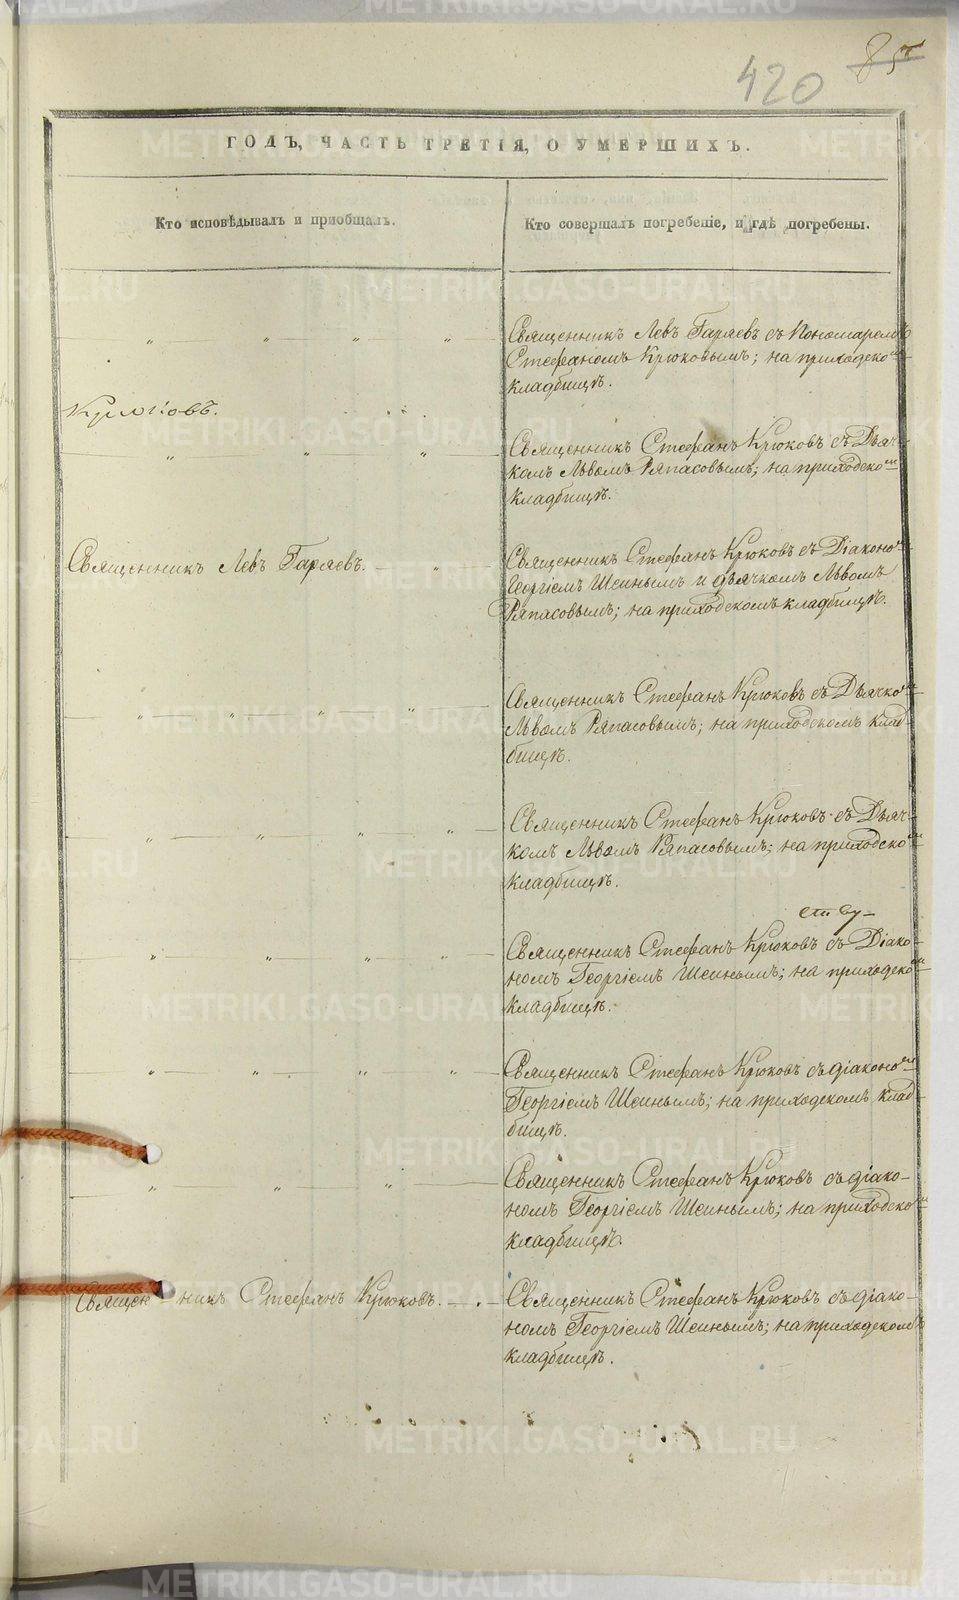 420 85
ГОДЪ, ЧАСТЬ ТРЕТІЯ, О УМЕРШИХЪ.
Кто исповѣдывалъ и пріобщалъ.
Кто совершалъ погребеніе, и гдѣ погребены.
Священникъ Левъ Гаряевъ съ Пономаремъ
Стефаномъ Крюковымъ; на приходско
кладбищѣ.
Священникъ Стефанъ Крюковъ съ Дьяч-
комъ Львомъ Ряпасовымъ; на приходском
кладбищѣ.
Священникъ Левъ Гаряевъ.
Священникъ Стефанъ Крюковъ съ Діаконо
Георгіемъ Шеинымъ и дьячкомъ Львомъ
Ряпасовымъ; на приходскомъ кладбищѣ.
Священникъ Стефанъ Крюковъ съ Дьячком
Львомъ Ряпасовымъ; на приходскомъ клад-
бищѣ.
Священникъ Стефанъ Крюковъ съ Дьяч-
комъ Львомъ Ряпасовымъ; на приходском
кладбищѣ.
Священникъ Стефанъ Крюковъ съ Діако-
номъ Георгіемъ Шеинымъ; на приходском
кладбищѣ.
Священникъ Стефанъ Крюковъ съ діаконом
Георгіемъ Шеинымъ; на приходскомъ клад-
бищѣ.
Священникъ Стефанъ Крюковъ съ діако-
номъ Георгіемъ Шеинымъ; на приходском
кладбищѣ.
Священ-никъ Стефанъ Крюковъ.
Священникъ Стефанъ Крюковъ съ діако-
номъ Георгіемъ Шеинымъ; на приходскомъ
кладбищѣ.
METRIKI.GASO-URAL.RU